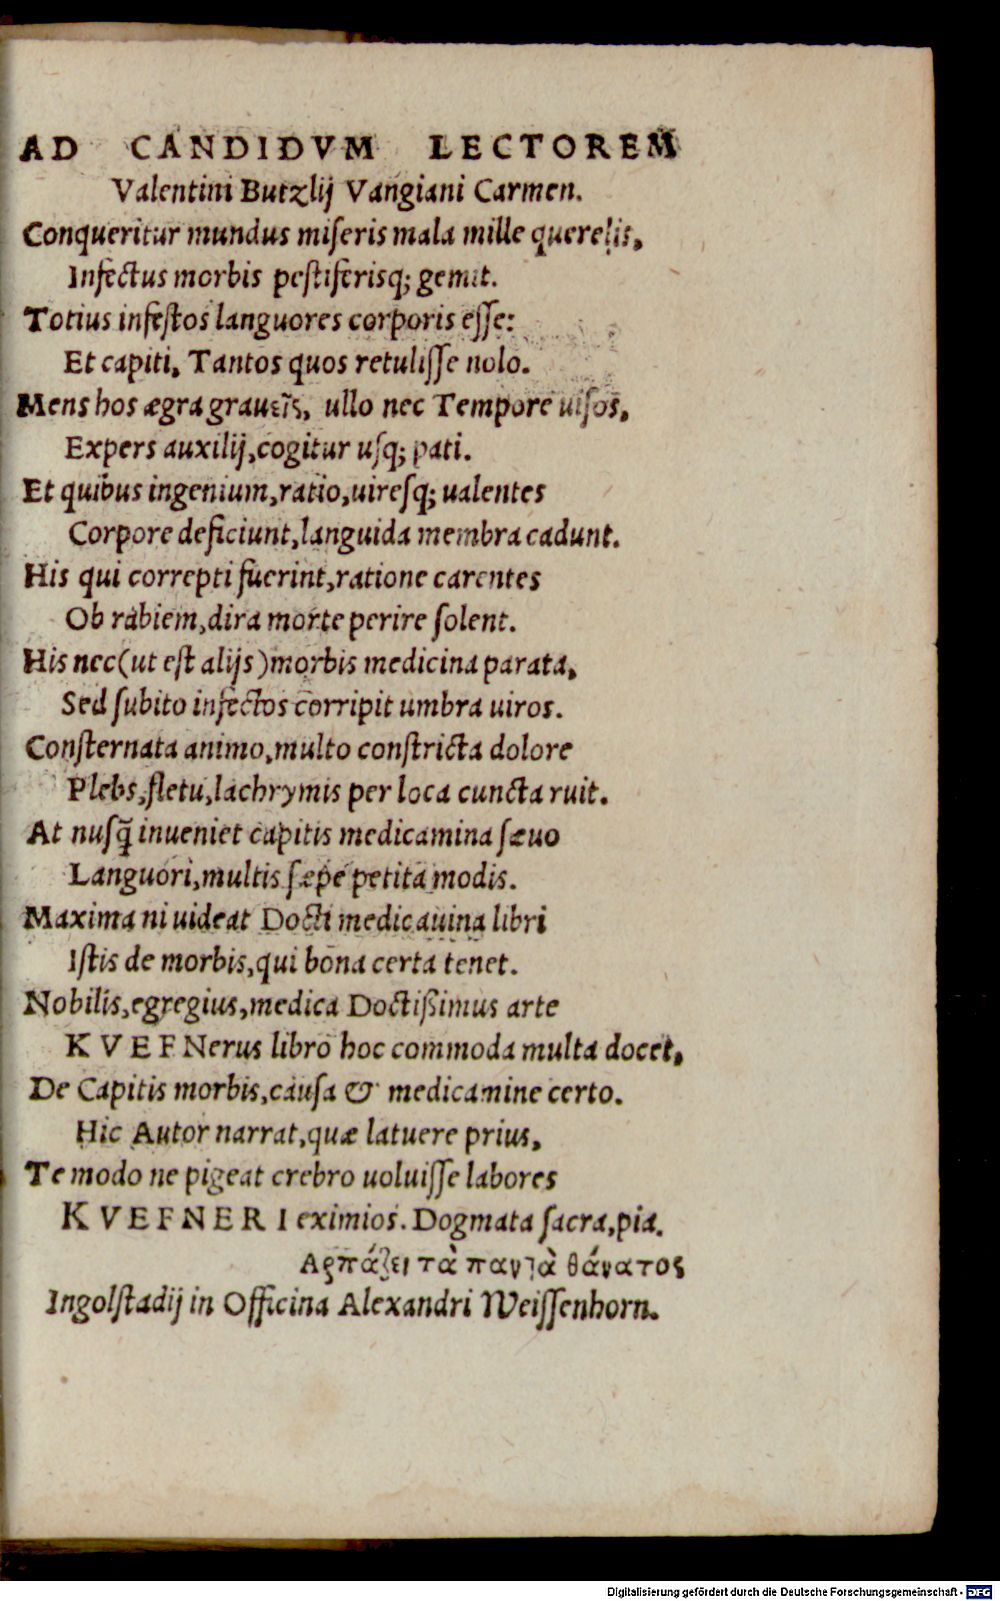 AD CANDIDVM LECTOREM
Valentini Butzlij Vangiani Carmen.
Conqueritur mundus miſeris mala mille querelis,
Infectus morbis peſtiferisq; gemit.
Totius infeſtos languores corporis eſſe:
Et capiti, Tantos quos retuliſſe nolo.
Mens hos ægra graueis, ullo nec Tempore uiſos,
Expers auxilij, cogitur uſq; pati.
Et quibus ingenium, ratio, uiresq; ualentes
Corpore deficiunt, languida membra cadunt.
His qui correpti fuerint, ratione carentes
Ob rabiem, dira morte perire ſolent.
His nec (ut eſt alijs) morbis medicina parata,
Sed ſubito infectos corripit umbra uiros.
Conſternata animo, multo conſtricta dolore
Plebs, fletu, lachrymis per loca cuncta ruit.
At nuſq̃ inueniet capitis medicamina ſæuo
Languori, multis ſæpe petita modis.
Maxima ni uideat Docti medicauina libri
Iſtis de morbis, qui bona certa tenet.
Nobilis, egregius, medica Doctiſsimus arte
KVEFNerus libro hoc commoda multa docet,
De Capitis morbis, cauſa & medicamine certo.
Hic Autor narrat, quæ latuere prius,
Te modo ne pigeat crebro uoluiſſe labores
KVEFNERI eximios. Dogmata ſacra, pia.
Αρπάζει τὰ παντὰ θάνατος
Ingolſtadij in Officina Alexandri Weiſſenhorn.
Digitalisierung gefördert durch die Deutsche Forschungsgemeinschaft - DFG